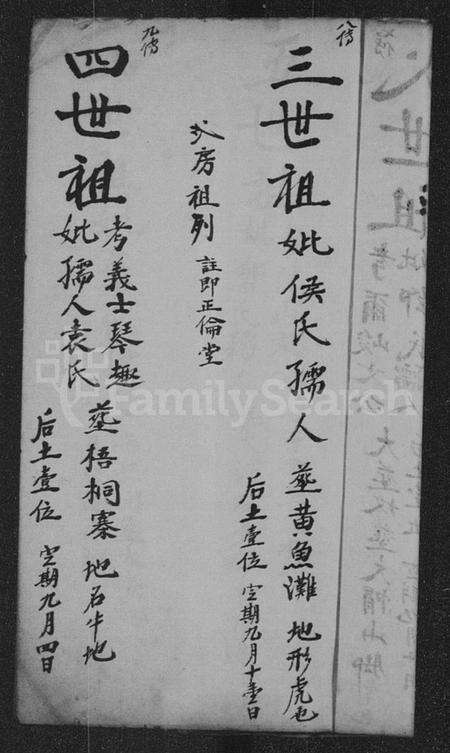 八傳
三世祖妣侯氏孺人
葬黄魚灘 地形虎也
后土壹位 定期九月十壹日
弍房祖列 註即正倫堂
九傳
四世祖
考義士琴趣
妣孺人袁氏
葬梧桐寨 地名牛地
后土壹位 定期九月四日
FamilySearch